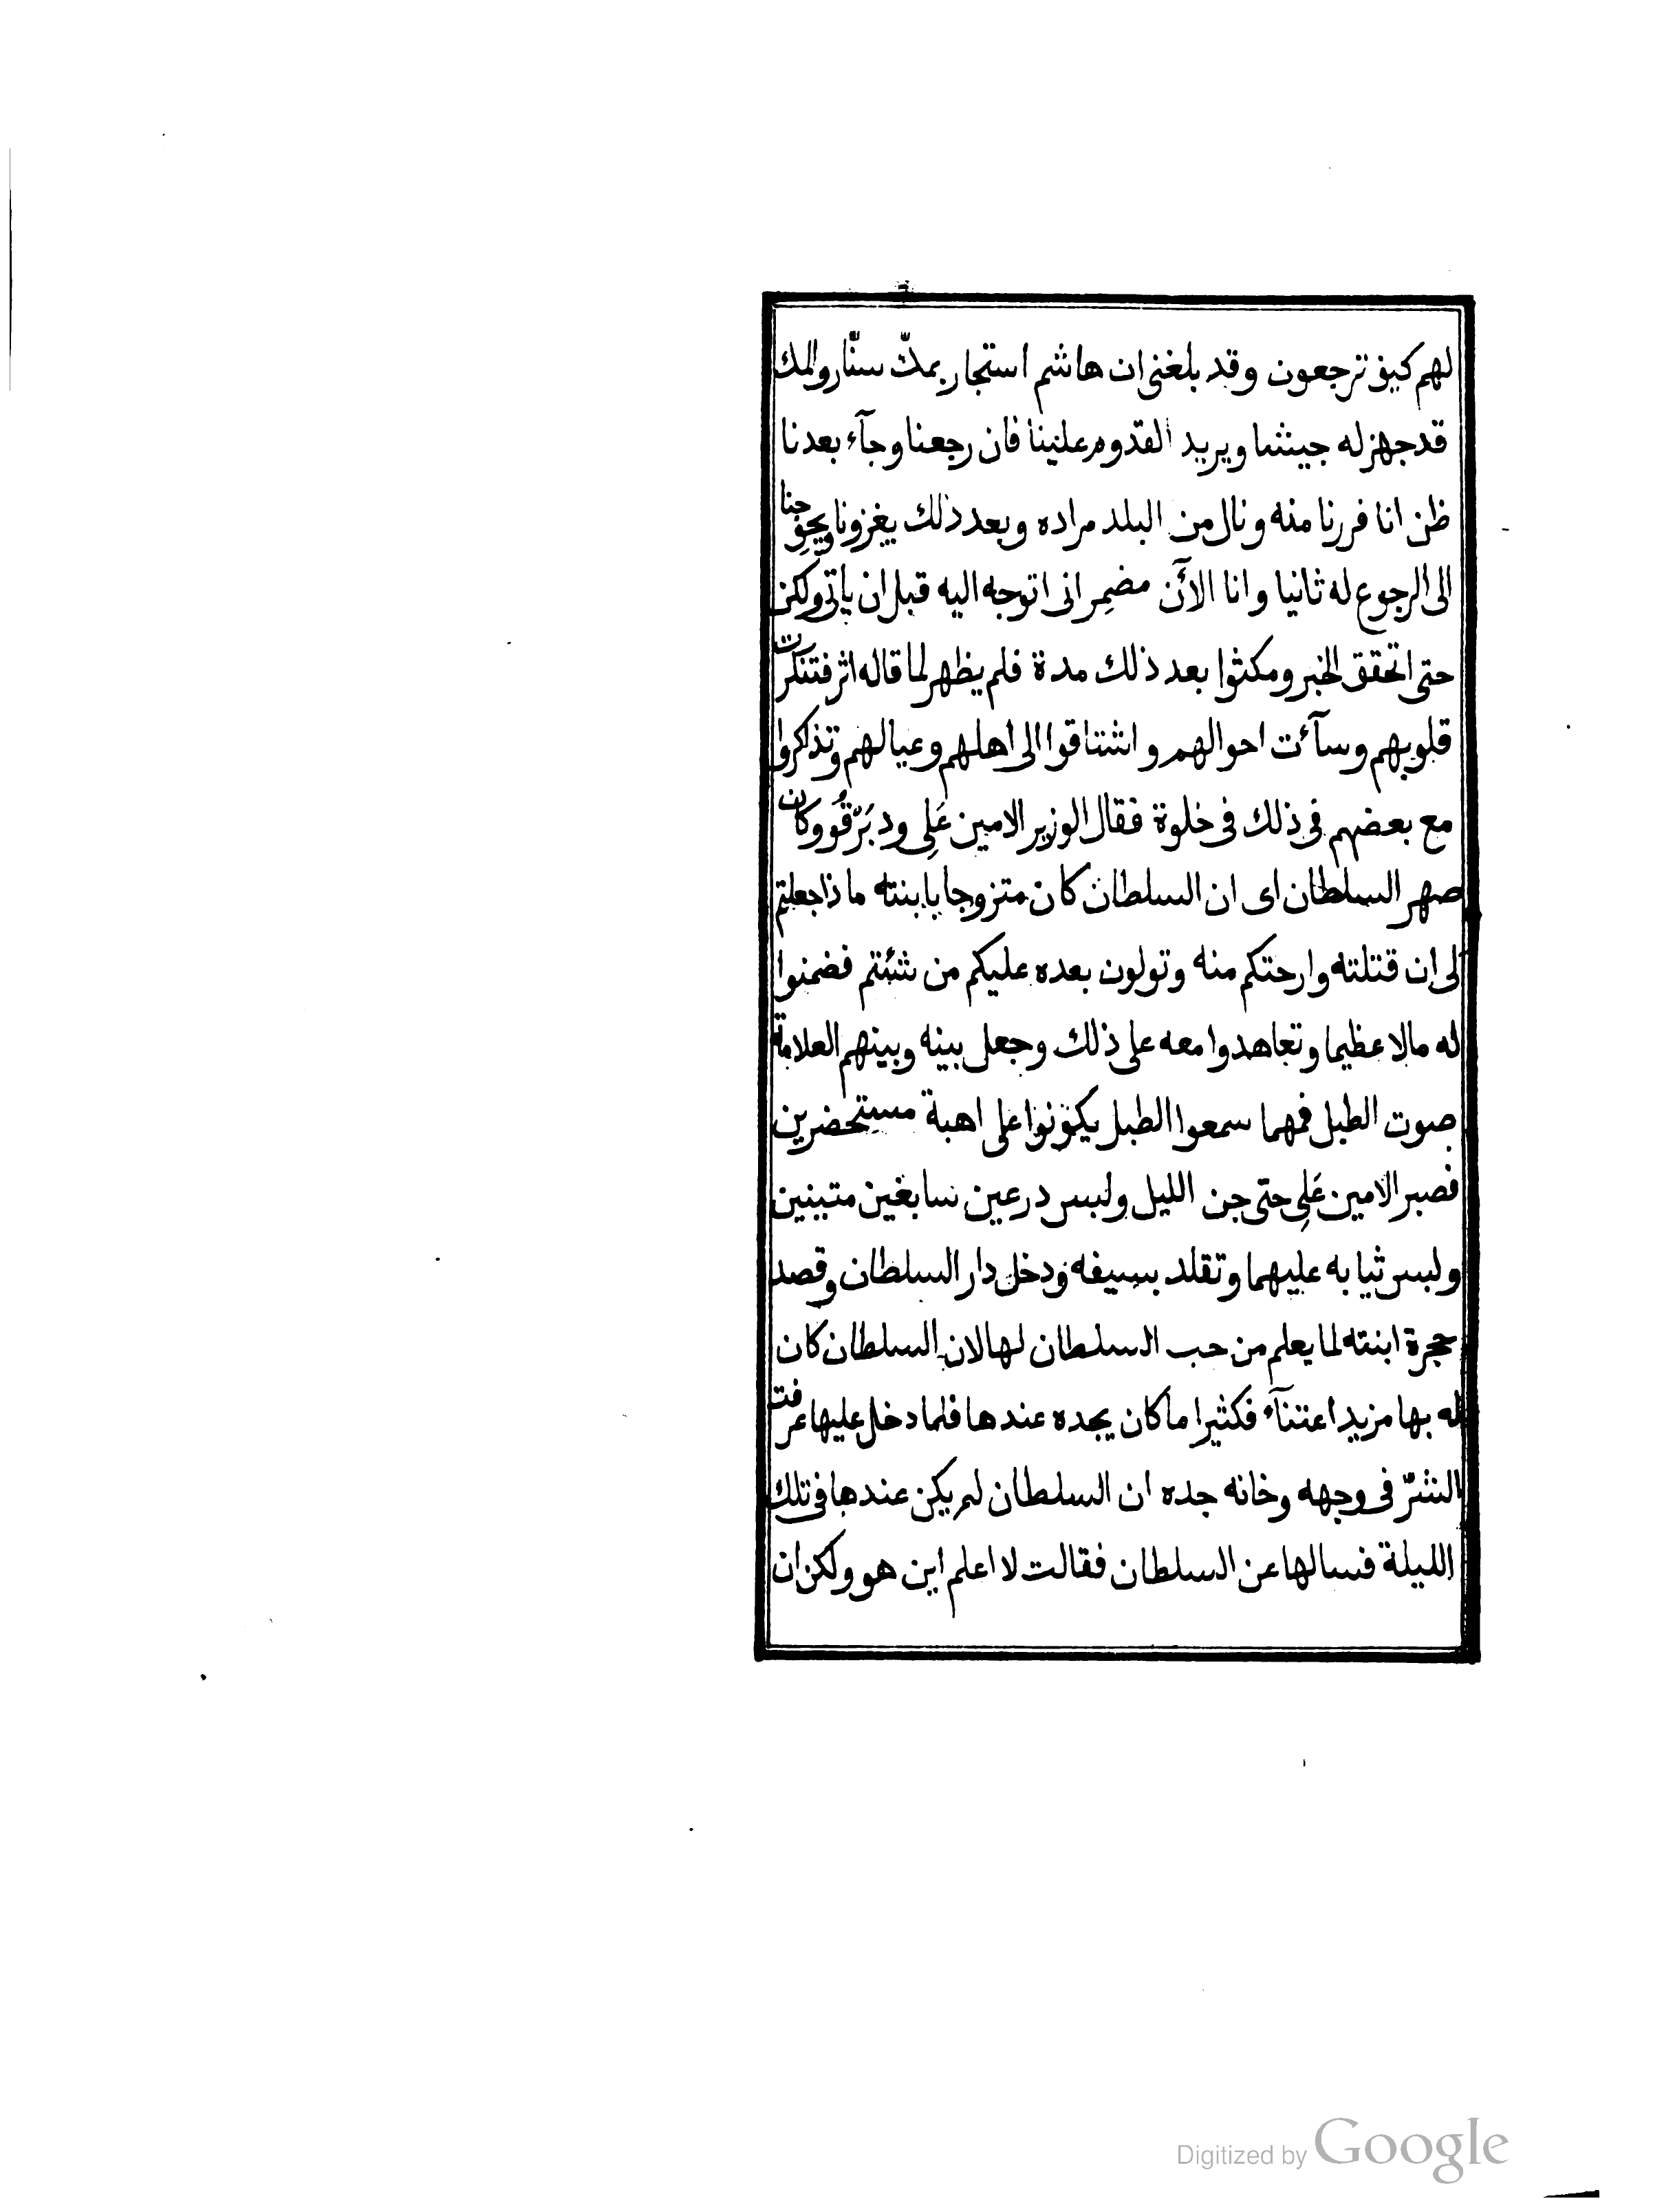 لهم كيف ترجعون وقد بلغنى ان هاشم استجار بملك سنّار والملك
قد جهز له جيشا ويريد القدوم علينا فان رجعنا وجآء بعدنا
ظن انا فررنا منه ونال من البلد مراده وبعد ذلك يغزونا ويحوجنا
الى الرجوع له ثانيا وانا الآن مضمر انى اتوجه اليه قبل ان ياتى ولكن
حتى اتحقق الخبر ومكثوا بعد ذلك مدة فلم يظهر لما قاله اثر فتنكرت
قلوبهم وسآءت احوالهم واشتاقوا الى اهلهم وعيالهم وتذاكروا
مع بعضهم فى ذلك فى خلوة فقال الوزير الامين عَلِى ود بَرْقُو وكان
صهر السلطان اى ان السلطان كان متزوجا بابنته ماذا جعلتم
لى ان قتلته وارحتكم منه وتولون بعده عليكم من شئتم فضمنوا
له مالا عظيما وتعاهدوا معه على ذلك وجعل بينه وبينهم العلامة
صوت الطبل فمهما سمعوا الطبل يكونوا على اهبة مستحضرين
فصبر الامين عَلِى حتى جن الليل ولبس درعين سابغين متينين
ولبس ثيابه عليهما وتقلد بسيفه ودخل دار السلطان وقصد
حجرة ابنته لما يعلم من حب السلطان لها لان السلطان كان
له بها مزيد اعتنآء فكثيرا ما كان يجده عندها فلما دخل عليها عرفت
الشرّ فى وجهه وخانه جده ان السلطان لم يكن عندها فى تلك
الليلة فسالها عن السلطان فقالت لا اعلم اين هو ولكن ان
Digitized by Google